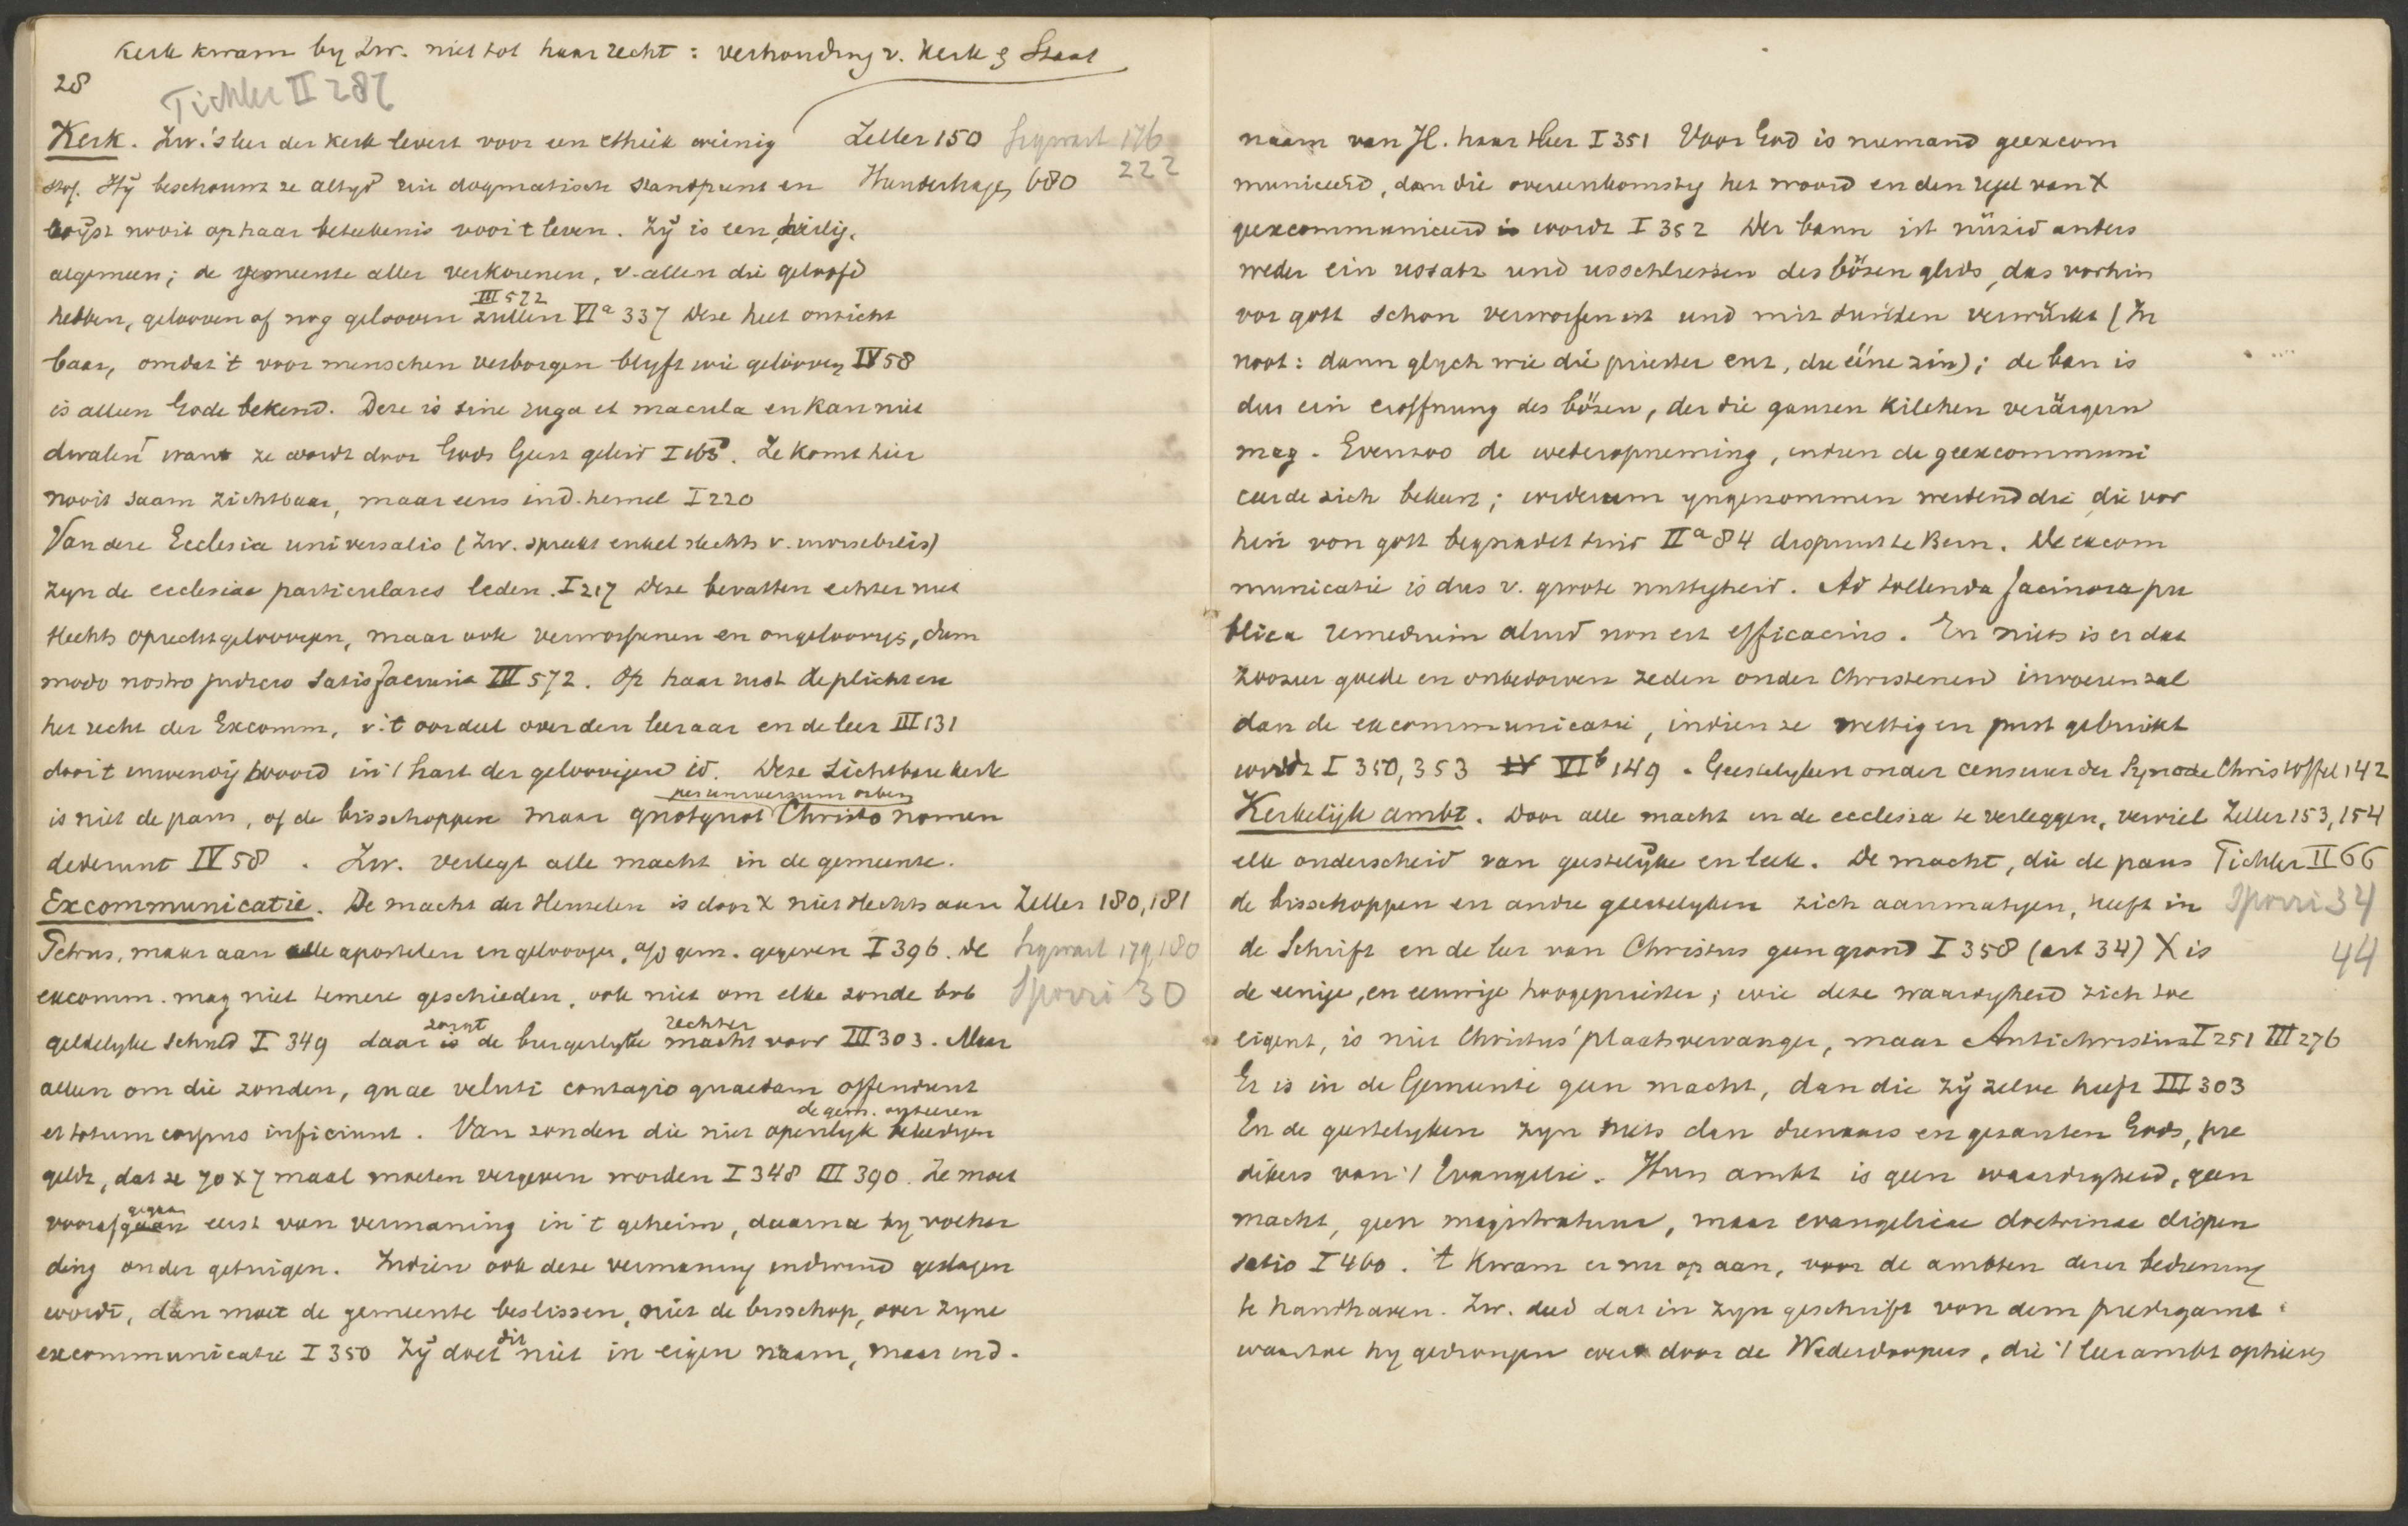 Kerk kwam by Zw. niet tot haar recht: verhouding v. Kerk & Staat
28
Tichler II 287
Kerk. Zw.'s leer der kerk levert voor een ethiek weinig Zeller 150 Sigwart 176
stof. Hij beschouwt ze altyd uit dogmatisch standpunt en Hundeshagen 680 222
wijst nooit op haar beteekenis voor 't leven. Zij is een, heilig,
algemeen; de gemeente aller verkorenen, v. allen die geloofd
hebben, gelooven of nog gelooven zullen III 572 VIa 337 Deze heet onzicht
baar, omdat 't voor menschen verborgen blyft wie gelooven IV 58
is alleen Gode bekend. Deze is sine ruga et macula en kan niet
dwalen want ze wordt door Gods Geest geleid I 468. Ze komt hier
nooit saam zichtbaar, maar eens in d. hemel I 220
Van deze Ecclesia universalis (Zw. spreekt enkel slechts v. invisibilis)
zyn de ecclesiae particulares leden. I 217 Deze bevatten echter niet
slechts oprechtgeloovigen, maar ook verworpenen en ongeloovigs, dum
modo nostro judicio satisfaciunt III 572. Op haar rust de plicht en
het recht der Excomm, v. 't oordeel over den leeraar en de leer III 131
door 't inwendig woord in 't hart der geloovigen id. Deze zichtbare kerk
is niet de paus, of de bisschoppen maar quotquot per universum orbem Christo nomen
dederunt IV 58. Zw. verlegt alle macht in de gemeente.
Excommunicatie. De macht der sleutelen is door X niet slechts aan Zeller 180, 181
Petrus, maar aan alle apostelen en geloovigen, a/d gem. gegeven I 396. De Sigwart 179, 180
excomm. mag niet temere geschieden, ook niet om elke zonde bvb Spörri 30
geldelyke schuld I 349 daar zorgt is de burgerlyke rechter macht voor III 303. Maar
alleen om die zonden, quae veluti contagio quaedam offendunt
et totum corpus inficiunt. Van zonden die niet openlyk de gem. beleedigen
geldt, dat ze 70 x 7 maal moeten vergeven worden I 348 III 390. Ze moet
voorafgegaan gaan eerst van vermaning in 't geheim, daarna by volhar
ding onder getuigen. Indien ook deze vermaning in d. wind geslagen
wordt, dan moet de gemeente beslissen, niet de bisschop, over zyne
excommunicatie I 350 Zij doet dit niet in eigen naam, maar in d.
naam van H. haar Heer I 351 Voor God is niemand geexcom
municeerd, dan die overeenkomstig het woord en den regel van X
geexcommuniceerd is wordt I 352 Der bann ist nüzid anders
weder ein ussatz und usschliessen des bösen glids, das vorhin
vor gott schon verworfen ist und mit sünden verwürkt (Zw
noot: dann glych wie die priester enz, die eine zin); de ban is
dus ein eroffnung des bösen, der die ganzen Kilchen verärgern
mag. Evenzoo de wederopneming, indien de geexcommuni
ceerde zich bekeert; widerum yngenommen werdend die die vor
hin von gott begnadet sind IIa 84 dispuut te Bern. De excom
municatie is dus v. groote nuttigheid. Ad tollenda facinora pu
blica remedium aliud non est efficacius. En niets is er dat
zoozeer goede en onbedorven zeden onder Christenen invoeren zal
dan de excommunicatie, indien ze wettig en juist gebruikt
wordt I 350, 353 IV VIb 149. Geestelyken onder censuur der Synode Christoffel 142
Kerkelijk ambt. Door alle macht in de ecclesia te verleggen, verviel Zeller 153, 154
elk onderscheid van geestelijke en leek. De macht, die de paus Tichler II 66
de bisschoppen en andre geestelyken zich aanmatigen, heeft in Spörri 34
de Schrift en de leer van Christus geen grond I 358 (art 34) X is 44
de eenige, en eeuwige hoogepriester; wie deze waardigheid zich toe
eigent, is niet Christus' plaatsvervanger, maar Antichristus I 251 III 276
Er is in de Gemeente geen macht, dan die zij zelve heeft III 303
En de geestelyken zyn niets dan dienaars en gezanten Gods, pre
dikers van 't Evangelie. Hun ambt is geen waardigheid, geen
macht, geen magistratuur, maar evangelicae doctrinae dispen
satio I 460. 't Kwam er nu op aan, voor de ambten derer bediening
te handhaven. Zw. deed dat in zyn geschrift von dem predigamt
waartoe hy gedrongen werd door de Wederdoopers, die 't leerambt ophieven